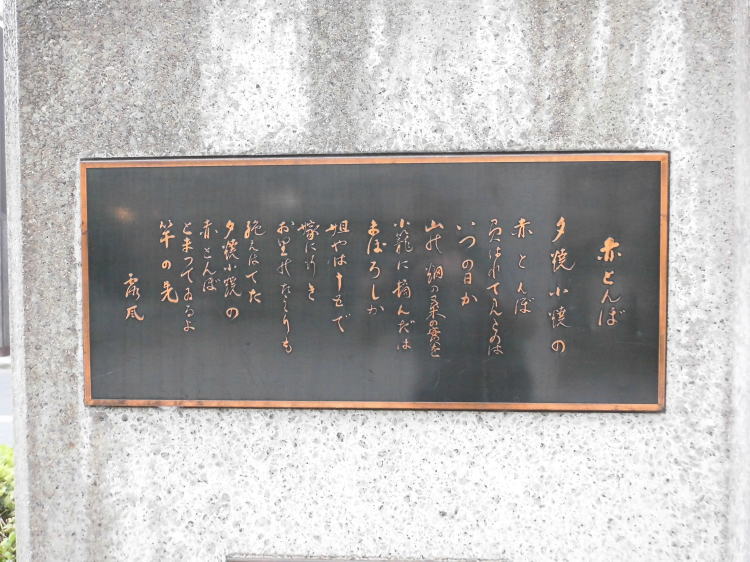 赤とんぼ
夕焼小焼の
赤とんぼ
負はれて見たのは
いつの日か
山の畑の桑の実を
小籠に摘んだは
まぼろしか
姐やは十五で
嫁に行き
お里のたよりも
絶えはてた
夕焼小焼の
赤とんぼ
とまってゐるよ
竿の先
露風